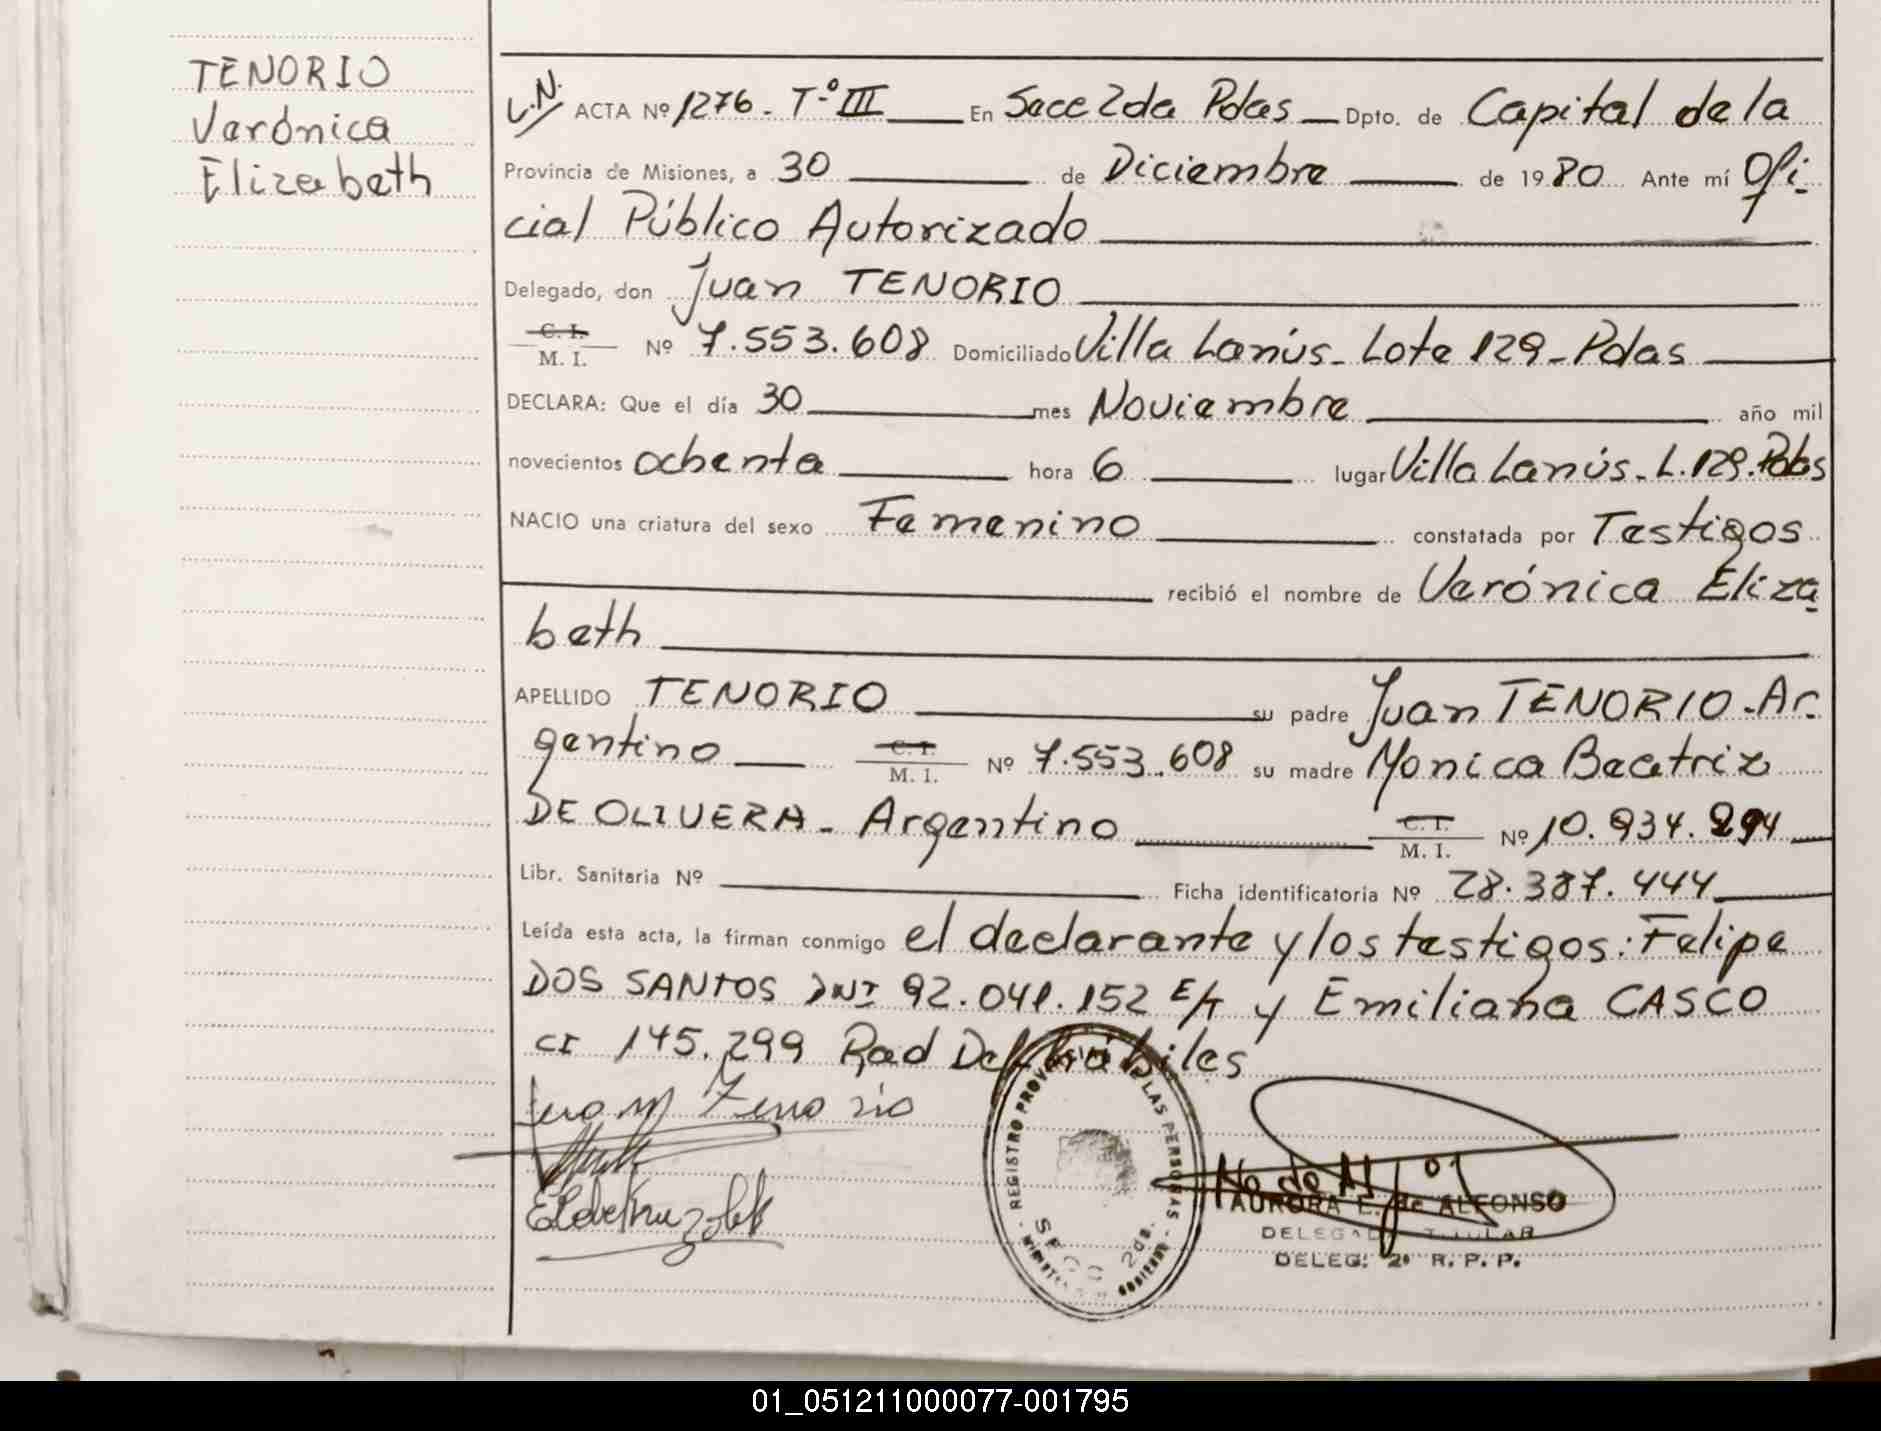 TENORIO
Verónica
Elizabeth
L.N. ACTA Nº 1276 - Tº III En Secc 2da Pdas Dpto. de Capital de la
Provincia de Misiones, a 30 de Diciembre de 1980 Ante mí Ofi-
cial Público Autorizado
Delegado, don Juan TENORIO
C. I.
M. I. Nº 7.553.608 Domiciliado Villa Lanús - Lote 129 - Pdas
DECLARA: Que el día 30 mes Noviembre año mil
novecientos ochenta hora 6 lugar Villa Lanús - L. 129. Pdas
NACIO una criatura del sexo Femenino constatada por Testigos
recibió el nombre de Verónica Eliza
beth
APELLIDO TENORIO su padre Juan TENORIO - Ar
gentino C. I.
M. I. Nº 7.553.608 su madre Monica Beatriz
DE OLIVERA - Argentino C. I.
M. I. Nº 10.934.294
Libr. Sanitaria Nº Ficha identificatoria Nº 28.387.444
Leída esta acta, la firman conmigo el declarante y los testigos: Felipe
DOS SANTOS DNI 92.041.152 E/T y Emiliana CASCO
CI 145.299 Pad Del hábiles
Juan Tenorio
REGISTRO PROVINCIAL DE LAS PERSONAS
SECC 2da.
AURORA E. de ALFONSO
DELEGADA TITULAR
DELEG: 2ª R. P. P.
01_051211000077-001795